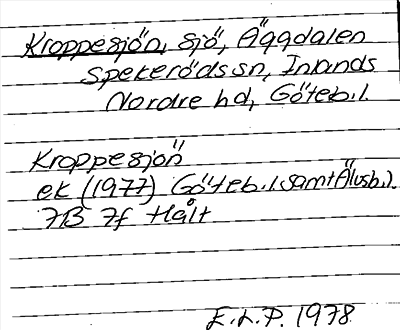 Kroppesjön, sjö, Äggdalen
Spekerödssn, Inlands
Nordre hd, Göteb.l.
Kroppesjön
ek (1977) Göteb.l. samt Älvsb.l.
7B 7f Hält
E.L.P. 1978